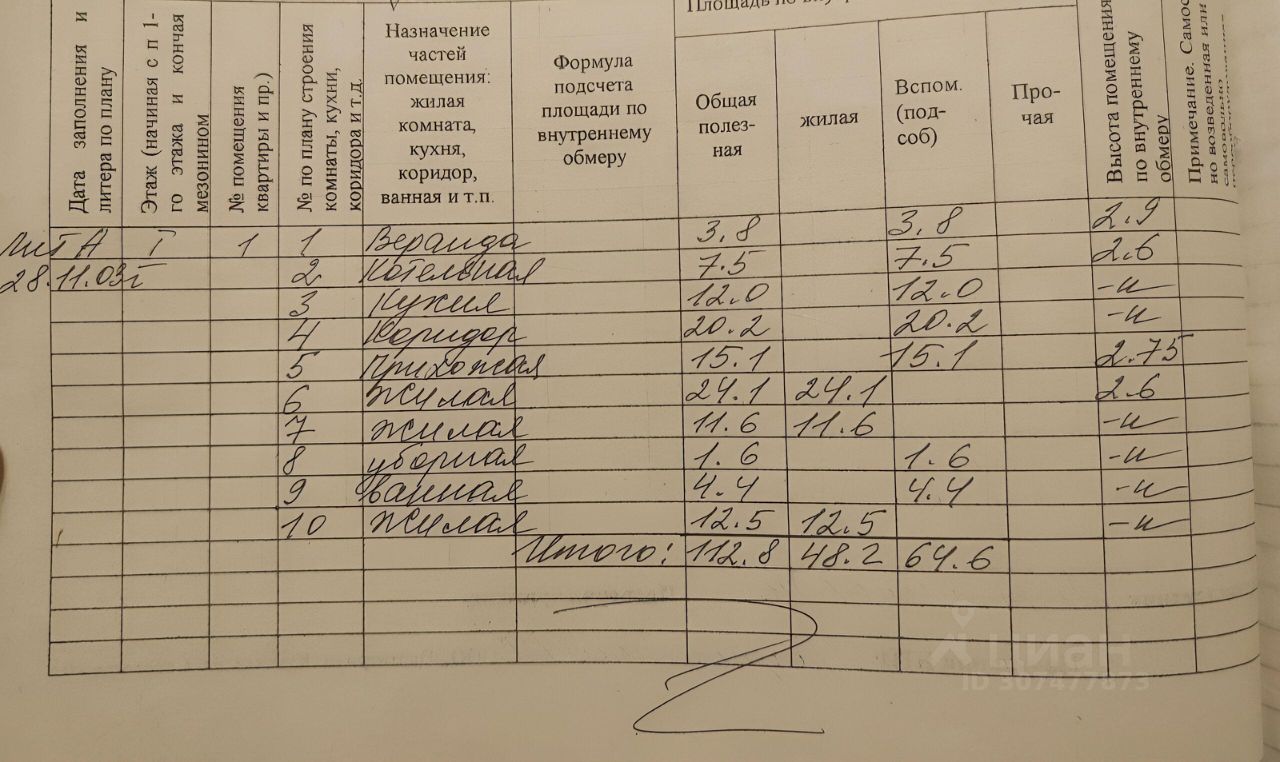 Площадь по внут
Дата заполнения и литера по плану
Этаж (начиная с п 1-го этажа и кончая мезонином
№ помещения квартиры и пр.)
№ по плану строения комнаты, кухни, коридора и т.д.
Назначение частей помещения: жилая комната, кухня, коридор, ванная и т.п.
Формула подсчета площади по внутреннему обмеру
Общая полез-ная
жилая
Вспом. (под-соб)
Про-чая
Высота помещения по внутреннему обмеру
Примечание. Самово но возведенная или
Лит А I 1 1 Веранда 3.8 3.8 2.9
28.11.03г 2 Котельная 7.5 7.5 2.6
3 Кухня 12.0 12.0 -и
4 Коридор 20.2 20.2 -и
5 Прихожая 15.1 15.1 2.75
6 Жилая 24.1 24.1 2.6
7 жилая 11.6 11.6 -и
8 уборная 1.6 1.6 -и
9 ванная 4.4 4.4 -и
10 жилая 12.5 12.5 -и
Итого: 112.8 48.2 64.6
циан
ID 307477873